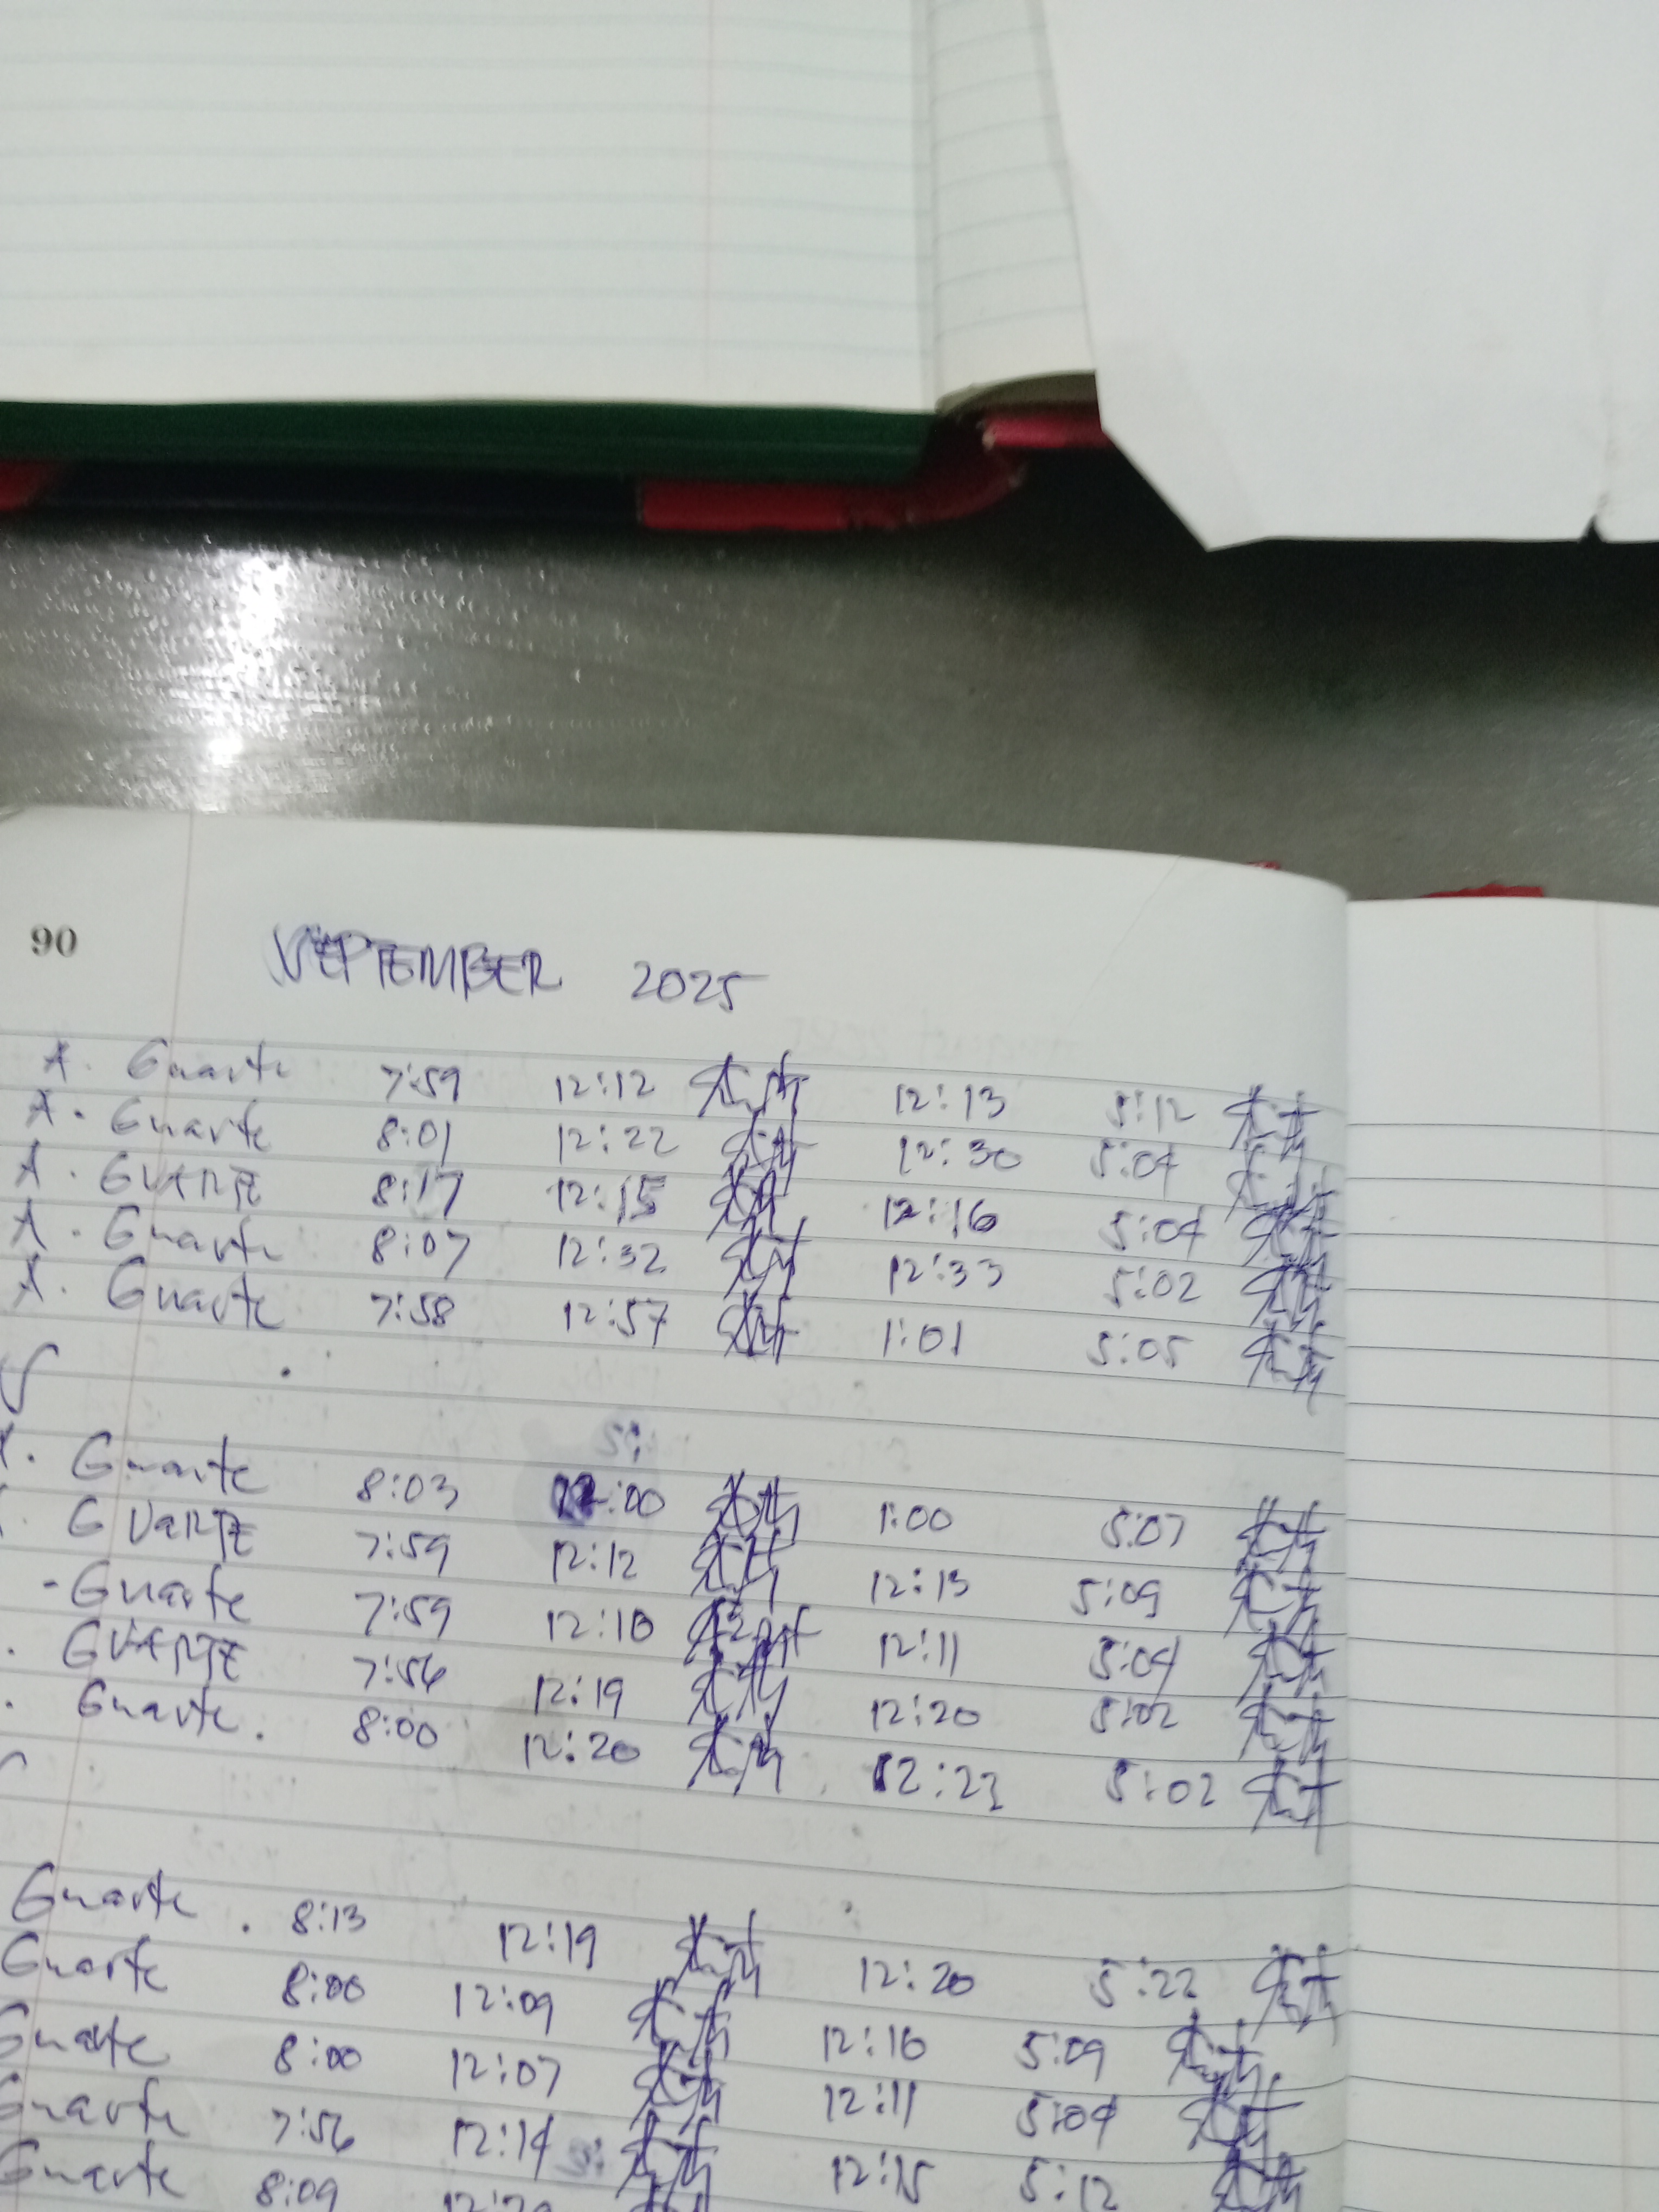 90 SEPTEMBER 2025
A. Guarte 7:59 12:12 12:13 5:12
A. Guarte 8:01 12:22 12:30 5:04
A. GUARTE 8:17 12:15 12:16 5:04
A. Guarte 8:07 12:32 12:33 5:02
A. Guarte 7:58 12:57 1:01 5:05
5:
. Guarte 8:03 12:00 1:00 5:07
. GUARTE 7:59 12:12 12:13 5:09
. Guarte 7:59 12:10 12:11 5:04
. GUARTE 7:56 12:19 12:20 5:02
. Guarte. 8:00 12:20 12:22 5:02
Guarte . 8:13 12:19 12:20 5:22
Guarte 8:00 12:09 12:10 5:09
Guarte 8:00 12:07 12:11 5:04
Guarte 7:56 12:14 12:15 5:12
Guarte 8:09